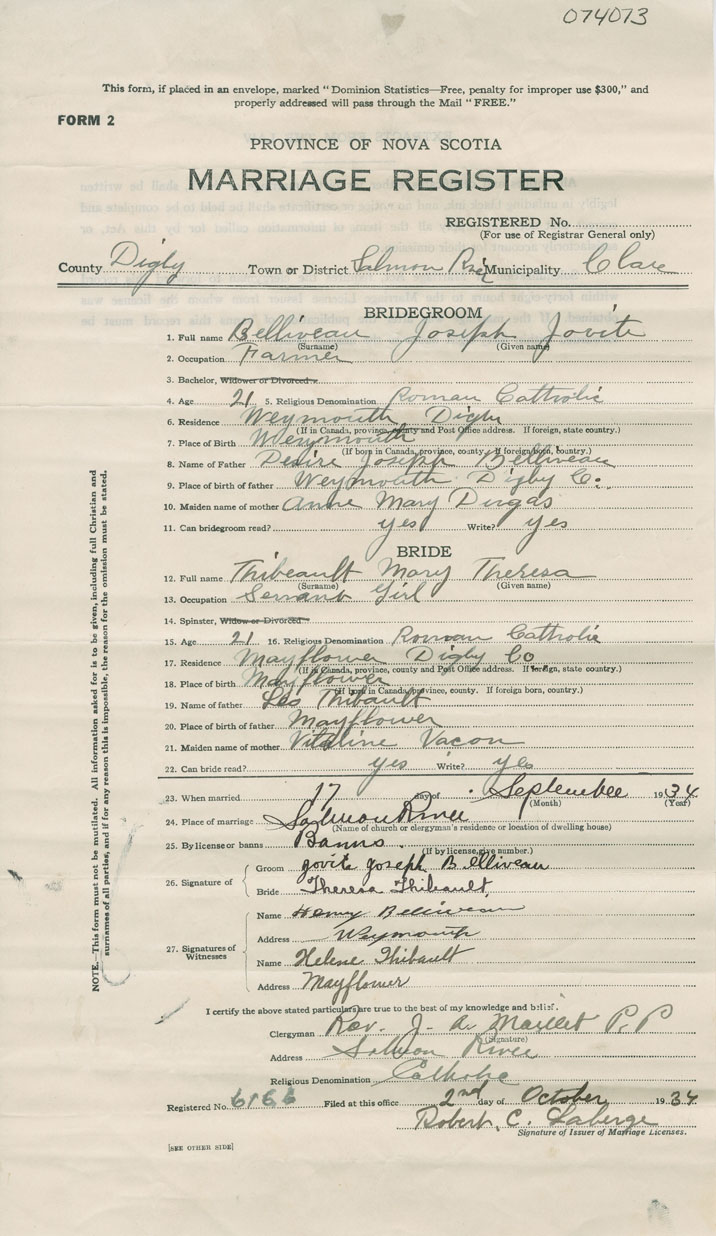 074073
This form, if placed in an envelope, marked "Dominion Statistics—Free, penalty for improper use $300," and
properly addressed will pass through the Mail "FREE."
FORM 2
PROVINCE OF NOVA SCOTIA
MARRIAGE REGISTER
REGISTERED No.
(For use of Registrar General only)
County Digby Town or District Salmon River Municipality Clare
BRIDEGROOM
1. Full name Belliveau Joseph Jovite
(Surname) (Given name)
2. Occupation Farmer
3. Bachelor, Widower or Divorced
4. Age 21 5. Religious Denomination Roman Catholic
6. Residence Weymouth Digby
(If in Canada, province, county and Post Office address. If foreign, state country.)
7. Place of Birth Weymouth
(If born in Canada, province, county. If foreign born, country.)
8. Name of Father Desire Joseph Belliveau
9. Place of birth of father Weymouth Digby Co.
10. Maiden name of mother Anne Mary Dugas
11. Can bridegroom read? yes Write? yes
BRIDE
12. Full name Thibeault Mary Theresa
(Surname) (Given name)
13. Occupation Servant Girl
14. Spinster, Widow or Divorced
15. Age 21 16. Religious Denomination Roman Catholic
17. Residence Mayflower Digby Co
(If in Canada, province, county and Post Office address. If foreign, state country.)
18. Place of birth Mayflower
(If born in Canada, province, county. If foreign born, country.)
19. Name of father Leo Thibault
20. Place of birth of father Mayflower
21. Maiden name of mother Vitaline Vacon
22. Can bride read? yes Write? yes
23. When married 17 day of September 1934
(Month) (Year)
24. Place of marriage Salmon River
(Name of church or clergyman's residence or location of dwelling house)
25. By license or banns Banns
(If by license, give number.)
26. Signature of
Groom Jovite Joseph Belliveau
Bride Theresa Thibault
27. Signatures of Witnesses
Name Henry Belliveau
Address Weymouth
Name Helene Thibault
Address Mayflower
I certify the above stated particulars are true to the best of my knowledge and belief.
Clergyman Rev. J. A. Maillet P.P
(Signature)
Address Salmon River
Religious Denomination Catholic
Registered No. 6166 Filed at this office 2nd day of October 1934
Robert C. Laberge
Signature of Issuer of Marriage Licenses.
[SEE OTHER SIDE]
NOTE.—This form must not be mutilated. All information asked for is to be given, including full Christian and
surnames of all parties, and if for any reason this is impossible, the reason for the omission must be stated.